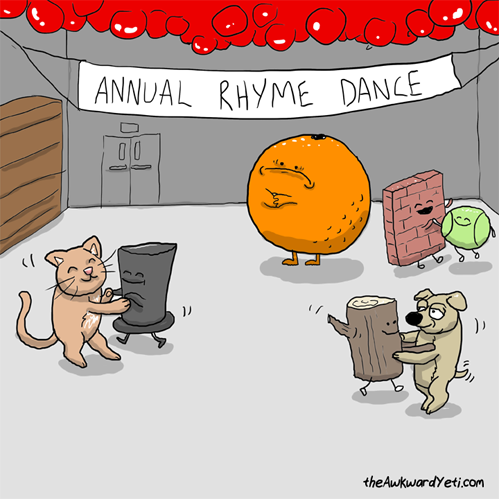 ANNUAL RHYME DANCE
theAwkwardYeti.com